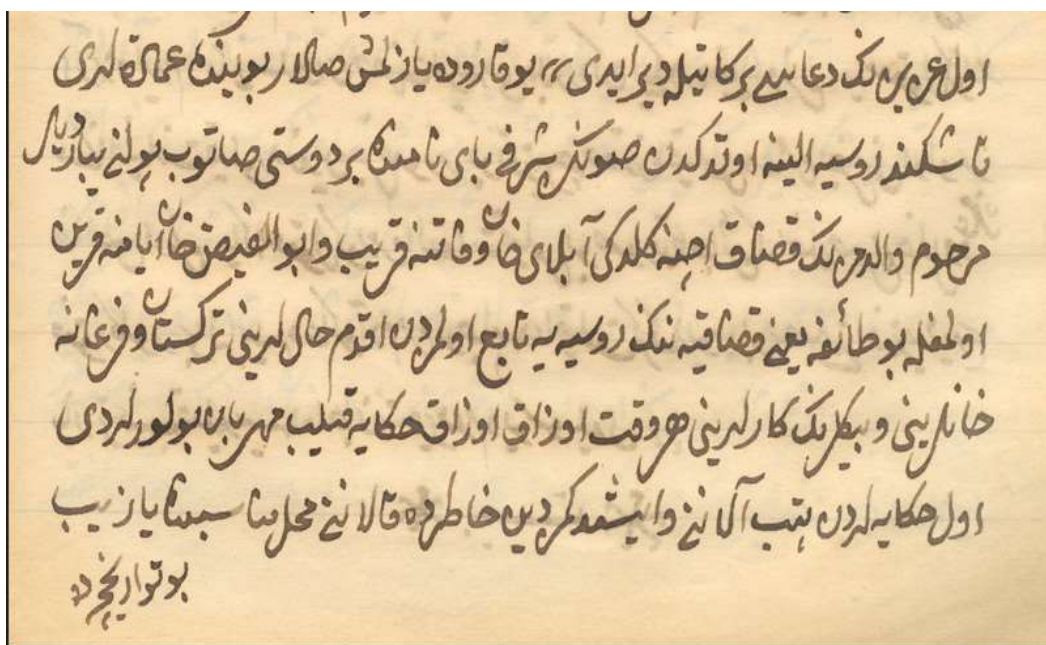 اول عزیزنك دعا سے بركاتیله دیر ایدی ،، یوقاروده یازلمش صالار بوبیندگا عمالاتلری
تاشكند روسیه الینه اوتدكدن صونك شرفی بای نامنده بر دوستی صاتوب پولنی یباردیلر
مرحوم والدمزنك قصاق اچینه كلدكی آبلای خان وفاتنه قریب وابوالفیض خان ایامنه قرین
اولمغله بو طائفه یعنی قصاقیه ننك روسیه یه تابع اولمردن اقدم حال لرینی تركستان وفرغانه
خانلرینی وبیكلرنك كارلرینی هر وقت اوزاق اوزاق حكایه قیلیب مهربان بولورلردی
اول حكایه لردن یتب آلكاننی وایشتدكمردین خاطرده قالاننی محل مناسبندا یازیب
بو تواریخمزده